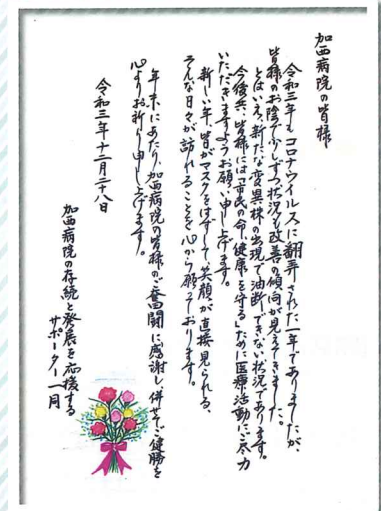 加西病院の皆様
令和三年もコロナウイルスに翻弄された一年でありましたが、
皆様のお陰で少しずつ状況も改善の傾向が見えてきました。
とはいえ、新たな変異株の出現で油断できない状況であります。
今後共、皆様には「市民の命、健康を守る」ために医療活動にご尽力
いただきますようお願い申し上げます。
新しい年、皆がマスクをはずして、笑顔が直接見られる、
そんな日々が訪れることを心から願っております。
年末にあたり、加西病院の皆様のご奮闘に感謝し、併せてご健勝を
心よりお祈り申し上げます。
令和三年十二月二十八日
加西病院の存続と発展を応援する
サポーター一同